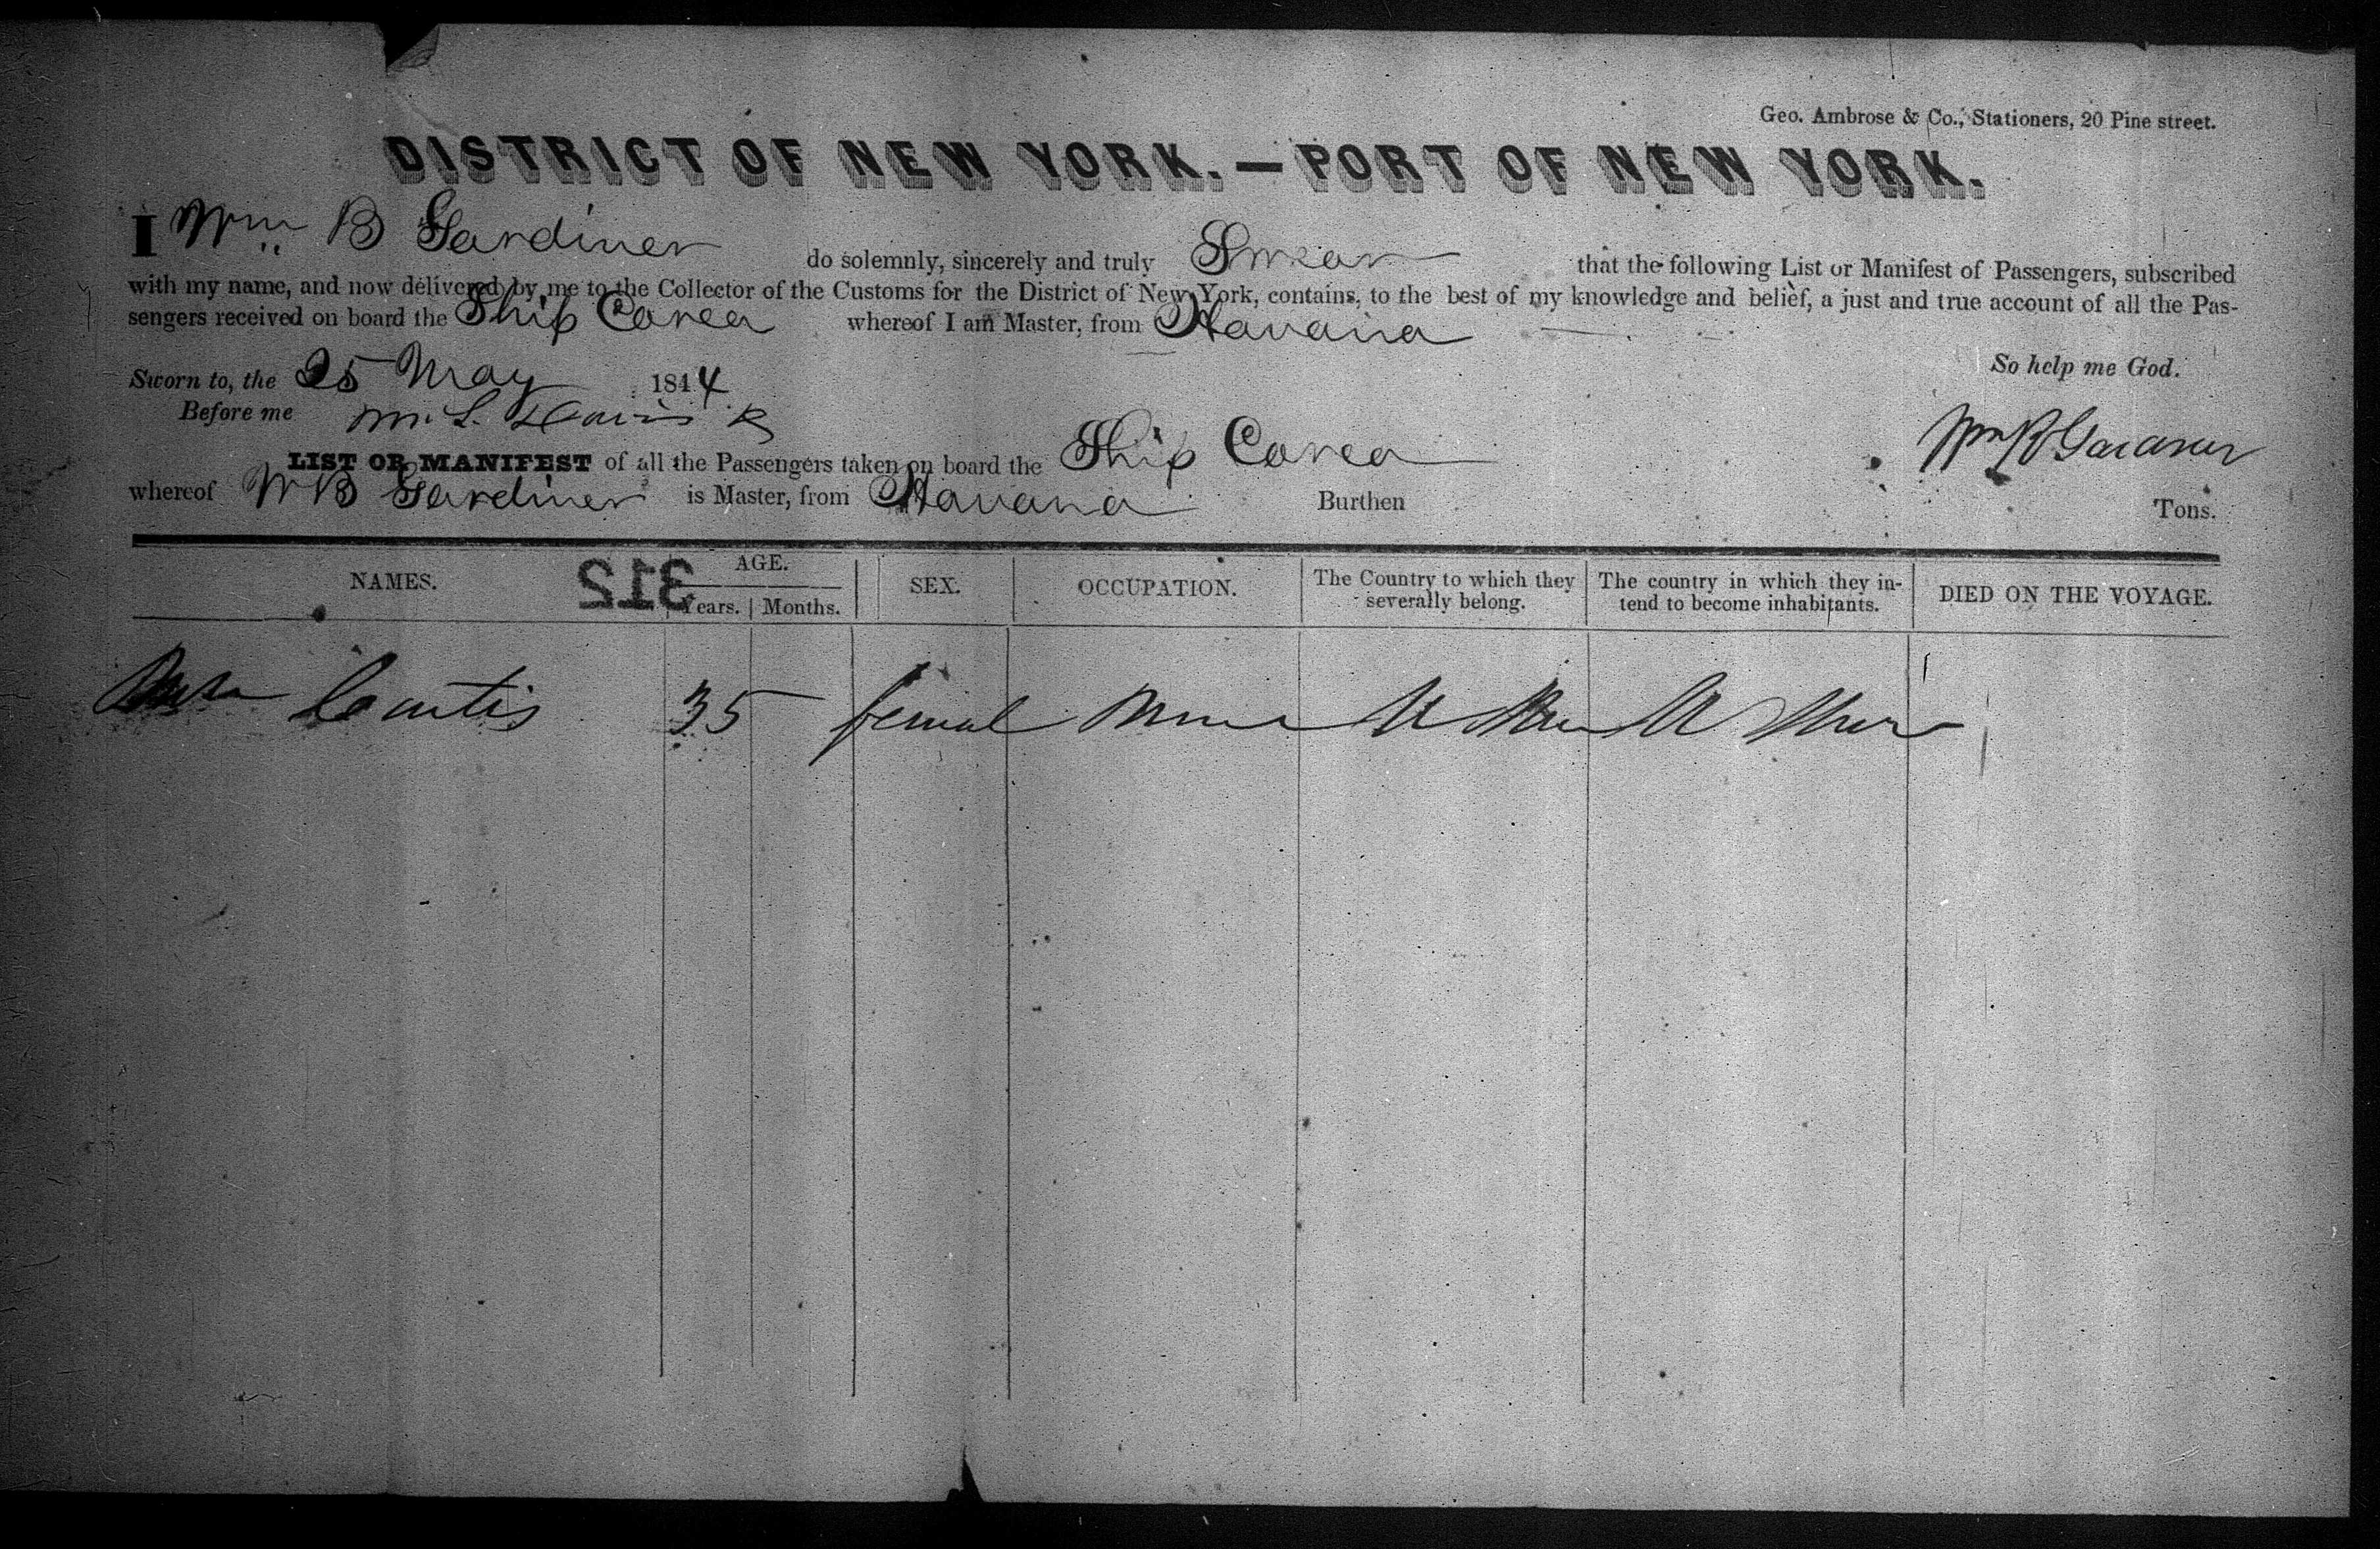 Geo. Ambrose & Co., Stationers, 20 Pine street.
DISTRICT OF NEW YORK.—PORT OF NEW YORK.
I Wm B Gardiner do solemnly, sincerely and truly Swear that the following List or Manifest of Passengers, subscribed
with my name, and now delivered by me to the Collector of the Customs for the District of New York, contains, to the best of my knowledge and belief, a just and true account of all the Pas-
sengers received on board the Ship Corea whereof I am Master, from Havana
So help me God.
Sworn to, the 25 May 1844
Before me
Wm B Gardiner
LIST OR MANIFEST of all the Passengers taken on board the Ship Corea
whereof W B Gardiner is Master, from Havana Burthen Tons.
NAMES. 312 AGE. SEX. OCCUPATION. The Country to which they severally belong. The country in which they in-tend to become inhabitants. DIED ON THE VOYAGE.
Years. Months.
Curtis 35 femal